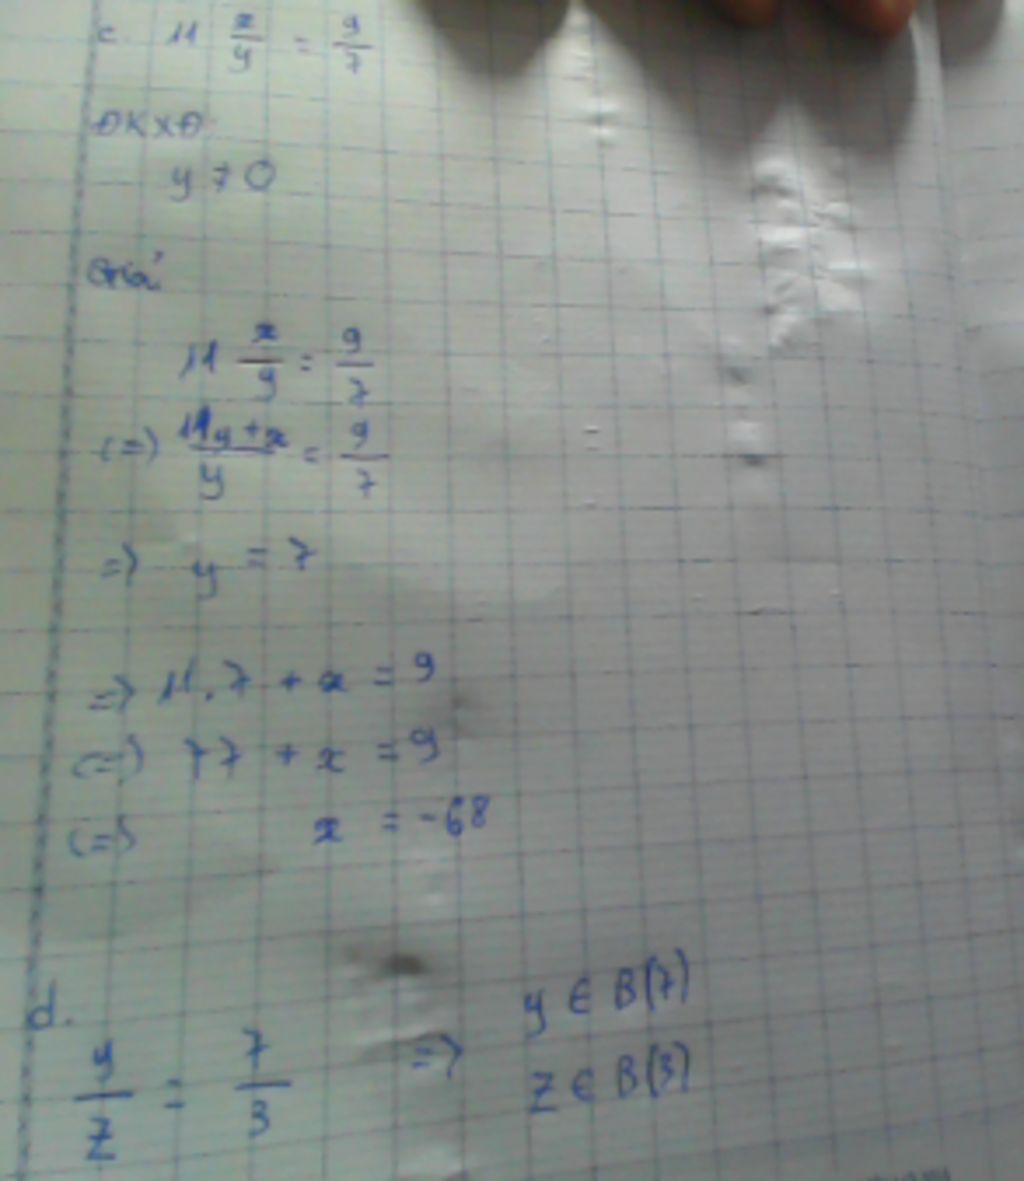 c. 11 x/y = 9/7
ĐKXĐ
y ≠ 0
Giả
11 x/y = 9/7
(=) 11y+x/y = 9/7
=) y = 7
=) 11.7 + x = 9
(=) 77 + x = 9
(=) x = -68
d.
y/z = 7/3 =) y ∈ B(7)
z ∈ B(3)